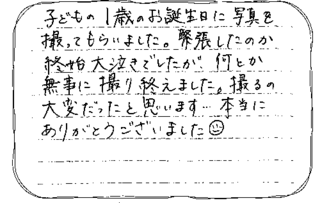 子どもの1歳のお誕生日に写真を
撮ってもらいました。緊張したのか
終始大泣きでしたが、何とか
無事に撮り終えました。撮るの
大変だったと思います…本当に
ありがとうございました☺